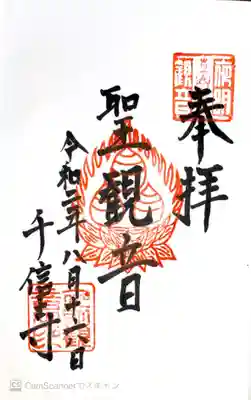 奉拝
聖観音
令和二年八月十六日
千信寺
CamScannerでスキャン